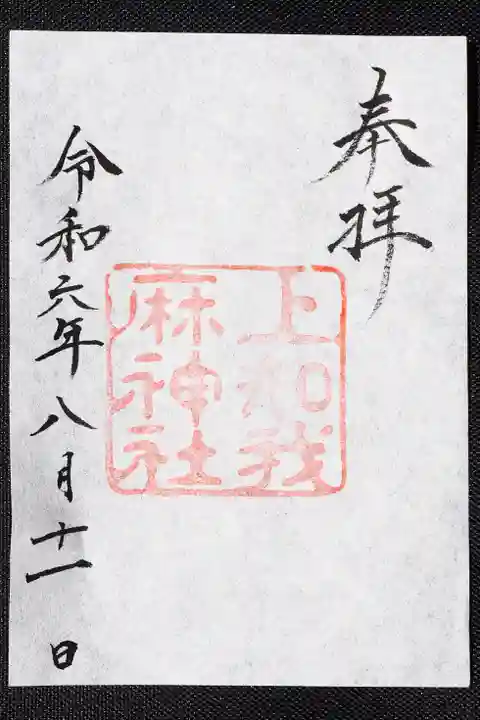 奉拝
上知我
麻神社
令和六年八月十一日